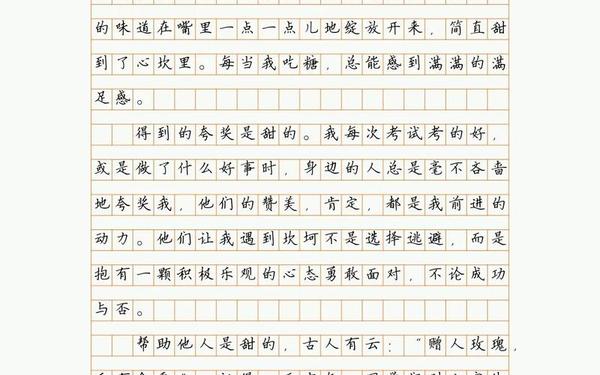 的味道在嘴里一点一点儿地绽放开来，简直甜
到了心坎里。每当我吃糖，总能感到满满的满
足感。
得到的夸奖是甜的。我每次考试考的好，
或是做了什么好事时，身边的人总是毫不吝啬
地夸奖我，他们的赞美，肯定，都是我前进的
动力。他们让我遇到坎坷不是选择逃避，而是
抱有一颗积极乐观的心态勇敢面对，不论成功
与否。
帮助他人是甜的，古人有云：“赠人玫瑰，